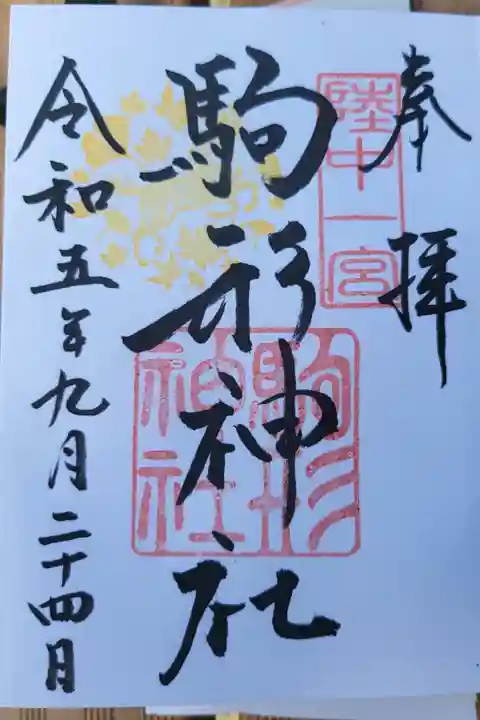 奉拝
陸中一宮
駒形神社
駒形
神社
令和五年九月二十四日